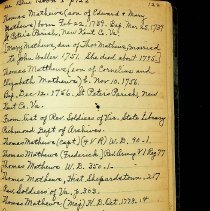 122
Thomas Mathews (son of Edward & Mary
Mathews) born Feb. 22, 1739. Bap. Mar. 25, 1739
St. Peter's Parish, New Kent Co. Va.
Mary Mathews, dau. of Thos Mathews, married
to John Waller 1751. She died about 1795.
Thomas Matthews (son of Cornelius and
Elizabeth Mathews) b. Nov. 10, 1756.
Bap. Dec. 12, 1766. St. Peters Parish, New
Kent Co. Va.
From list of Rev. Soldiers of Va. State Library
Richmond Dept of Archives.
Thomas Mathews (Capt) (4 V R) W.D. 90-1.
Thomas Mathews (Frederick) Rev. Army V1 Reg 77
Thomas Mathews W.D. 350-1.
Thomas Mathews, Heit Shepardstown, 217
Rev. Soldiers of Va. p. 303.
Thomas Mathews (Maj) H.D. Oct. 1778.